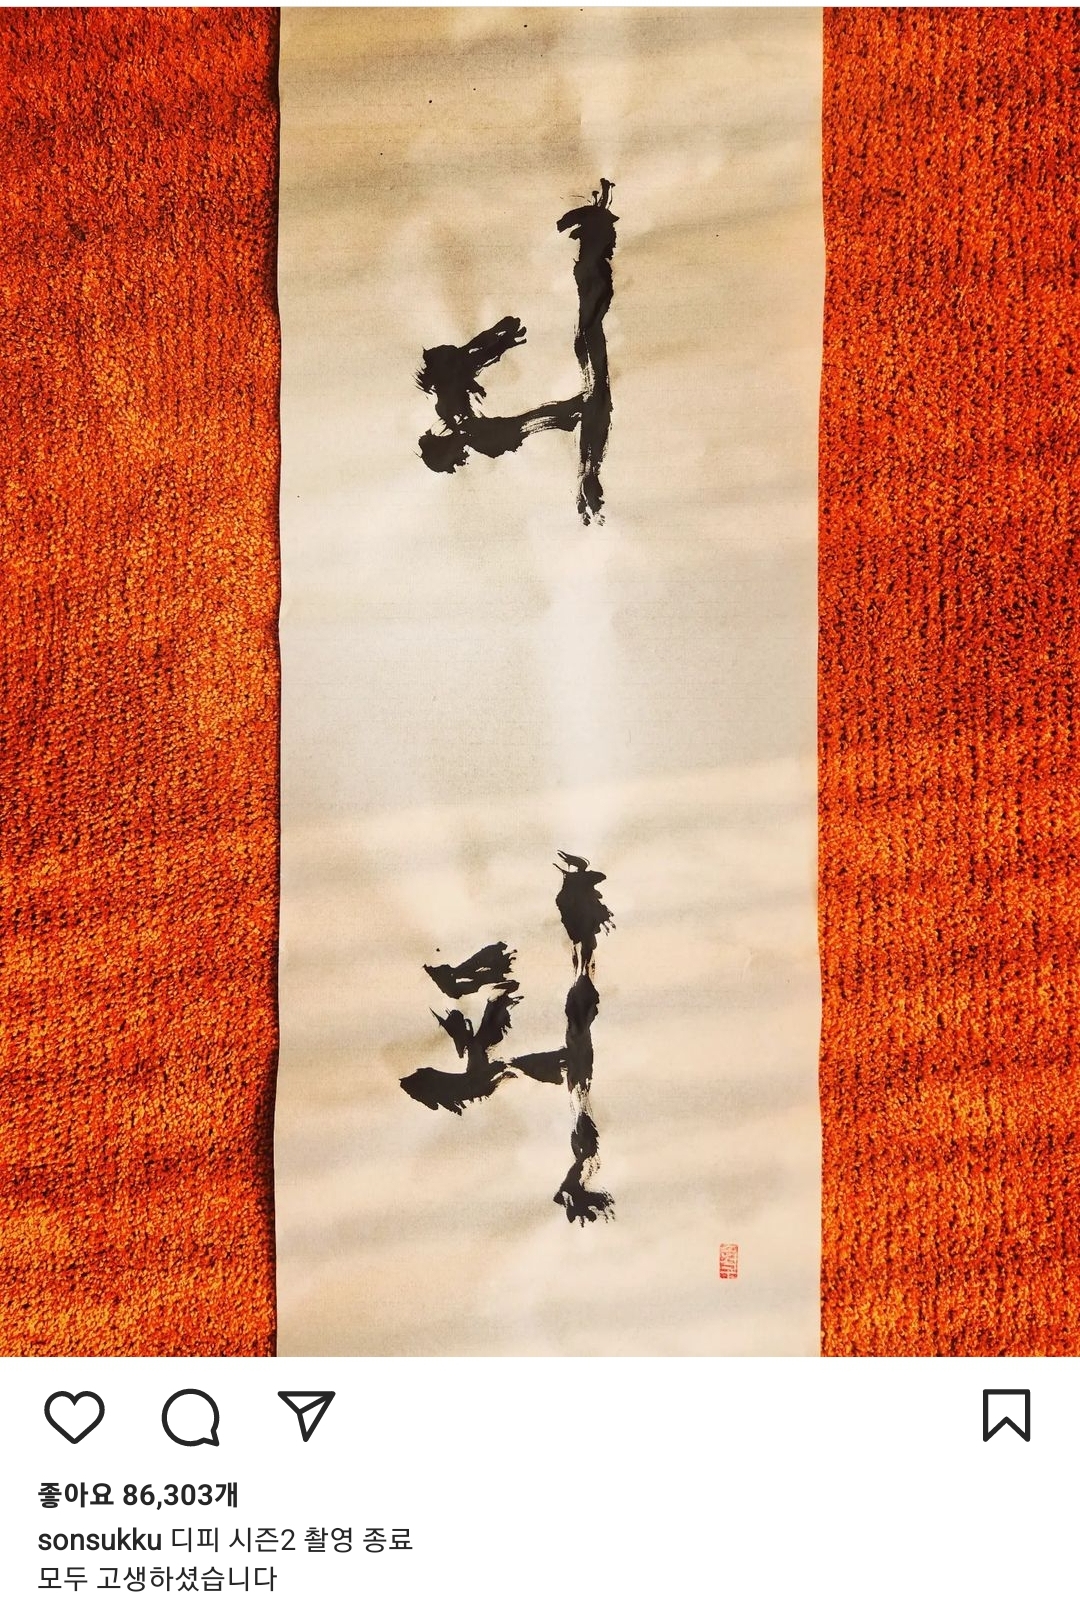 디
피
좋아요 86,303개
sonsukku 디피 시즌2 촬영 종료
모두 고생하셨습니다